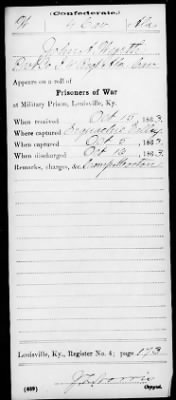 (Confederate.)
4 Cav Ala
Appears on a roll of
Prisoners of War
at Military Prison, Louisville, Ky.
When received Oct 15, 1863.
Where captured Sequatchie Valley
When captured Oct 5, 1863.
When discharged Oct 16, 1863.
Remarks, charges, &c. Camp Morton
Louisville, Ky., Register No. 4; page 173
(639) Copyist.